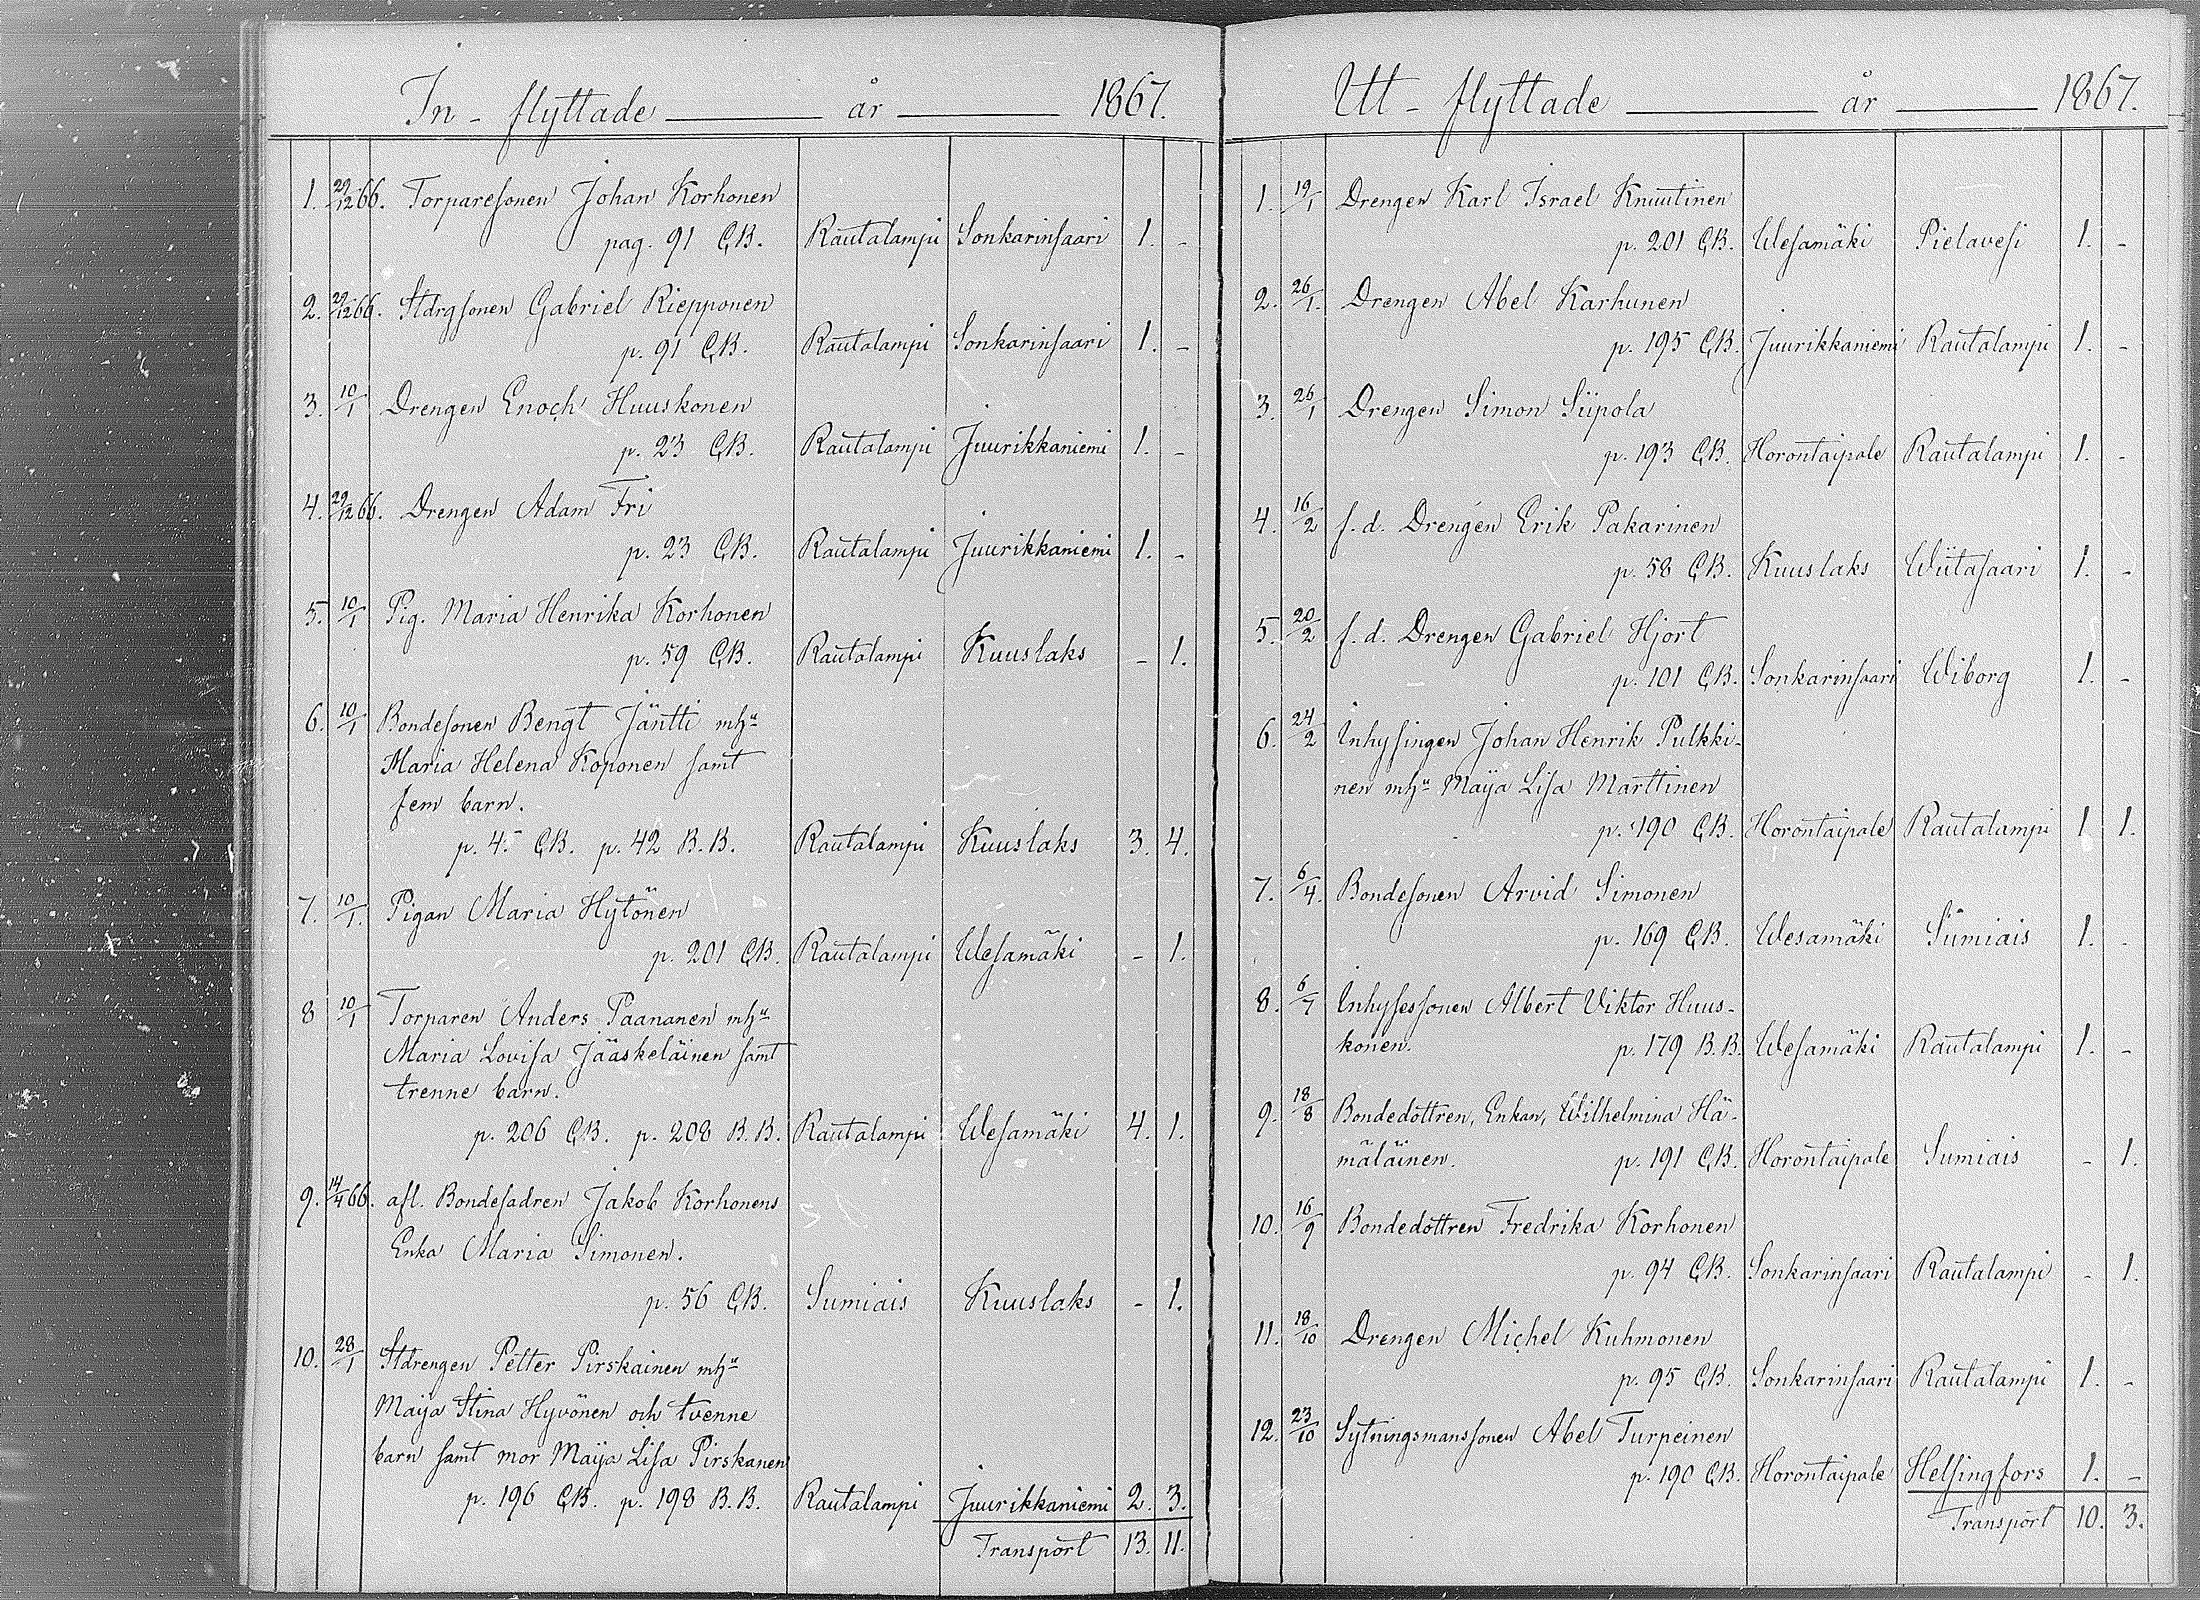 In - flyttade år 1867.
1. 29/12 66. Torparesonen Johan Korhonen
pag. 91 C,B. Rautalampi Sonkarinsaari 1. -
2. 29/12 66. Stdrgsonen Gabriel Riepponen
p. 91 C,B. Rautalampi Sonkarinsaari 1. -
3. 10/1 Drengen Enoch Huuskonen
p. 23 C,B. Rautalampi Juurikkaniemi 1. -
4. 29/12 66. Drengen Adam Fri
p. 23 C,B. Rautalampi Juurikkaniemi 1. -
5. 10/1 Pig. Maria Henrika Korhonen
p. 59 C,B. Rautalampi Kuuslaks - 1.
6. 10/1 Bondesonen Bengt Jäntti mhu
Maria Helena Koponen samt
fem barn.
p. 45 C,B. p. 42 B.B. Rautalampi Kuuslaks 3. 4.
7. 10/1. Pigan Maria Hytönen
p. 201 C,B. Rautalampi Wesamäki - 1.
8 10/1 Torparen Anders Paananen mhu
Maria Lovisa Jääskeläinen samt
trenne barn.
p. 206 C,B. p. 208 B.B. Rautalampi Wesamäki 4. 1.
9. 14/4 66. afl. Bondesadren Jakob Korhonens
Enka Maria Simonen.
p. 56 C,B. Sumiais Kuuslaks - 1.
10. 28/1 Stdrengen Petter Pirskainen mhu
Maija Stina Hyvönen och tvenne
barn samt mor Maija Lisa Pirskanen
p. 196 C,B. p. 198 B.B. Rautalampi Juurikkaniemi 2. 3.
Transport 13. 11.
Utt - flyttade år 1867.
1. 19/1 Drengen Karl Israel Knuutinen
p. 201 C,B. Wesamäki Pielavesi 1. -
2. 26/1. Drengen Abel Karhunen
p. 195 C,B. Juurikkaniemi Rautalampi 1. -
3. 26/1 Drengen Simon Siipola
p. 193 C,B. Horontaipale Rautalampi 1. -
4. 16/2 f. d. Drengen Erik Pakarinen
p. 58 C,B. Kuuslaks Wiitasaari 1. -
5. 20/2 f. d. Drengen Gabriel Hjort
p. 101 C,B. Sonkarinsaari Wiborg 1. -
6. 24/2 Inhysingen Johan Henrik Pulkki-
nen mhu Maija Lisa Marttinen
p. 190 C,B. Horontaipale Rautalampi 1 1.
7. 6/4. Bondesonen Arvid Simonen
p. 169 C,B. Wesamäki Sumiais 1. -
8. 6/7 Inhysessonen Albert Viktor Huus-
konen. p. 179 B.B. Wesamäki Rautalampi 1. -
9. 18/8 Bondedottren, Enkan, Wilhelmina Hä-
mäläinen. p. 191 C,B. Horontaipale Sumiais - 1.
10. 16/9 Bondedottren Fredrika Korhonen
p. 94 C,B. Sonkarinsaari Rautalampi - 1.
11. 18/10 Drengen Michel Kuhmonen
p. 95 C,B. Sonkarinsaari Rautalampi 1. -
12. 23/10 Sytningsmanssonen Abel Turpeinen
p. 190 C,B. Horontaipale Helsingfors 1. -
Transport 10. 3.